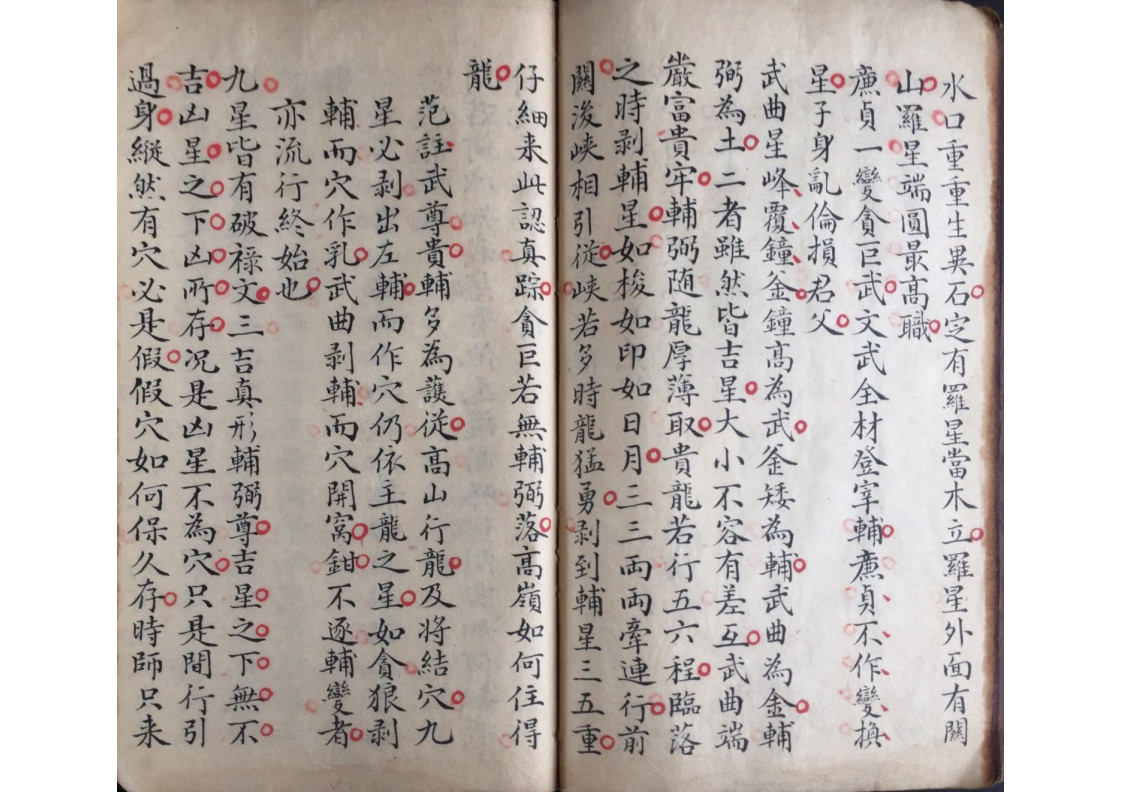 水口重重生異石定有羅星當木立羅星外面有關
山羅星端圓最髙職
廉貞一變貪巨武文武全材登宰輔廉貞不作變換
星子身亂倫損君父
武曲星峰覆鐘釜鐘髙為武釜矮為輔武曲為金輔
弼為土二者雖然皆吉星大小不容有差互武曲端
嚴富貴牢輔弼随龍厚薄取貴龍若行五六程臨落
之時剥輔星如梭如印如日月三三両両牽連行前
關浚峡相引従峡若多時龍猛勇剥到輔星三五重
仔細来此認真踪貪巨若無輔弼落髙嶺如何住得
龍
范註武尊貴輔多為護従髙山行龍及将結穴九
星必剥出左輔而作穴仍依主龍之星如貪狼剥
輔而穴作乳武曲剥輔而穴開窩鉗不逐輔變者
亦流行終始也
九星皆有破禄文三吉真形輔弼尊吉星之下無不
吉凶星之下凶所存况是凶星不為穴只是間行引
過身縦然有穴必是假假穴如何保久存時師只来